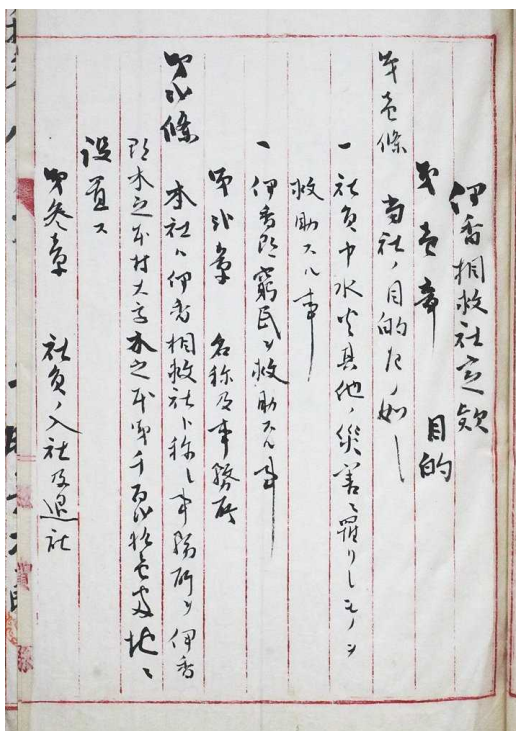 伊香相救社定欵
第壱章　目的
第壱條　当社ノ目的左ノ如シ
一　社員中水火其他ノ災害ニ罹リシモノヲ
救助スル事
一　伊香郡窮民ヲ救助スル事
第弐章　名称及事務所
第弐條　本社ハ伊香相救社ト称シ事務所ヲ伊香
郡木之本村大字木之本第千百
番地ニ
設置ス
第参章　社員ノ入社及退社